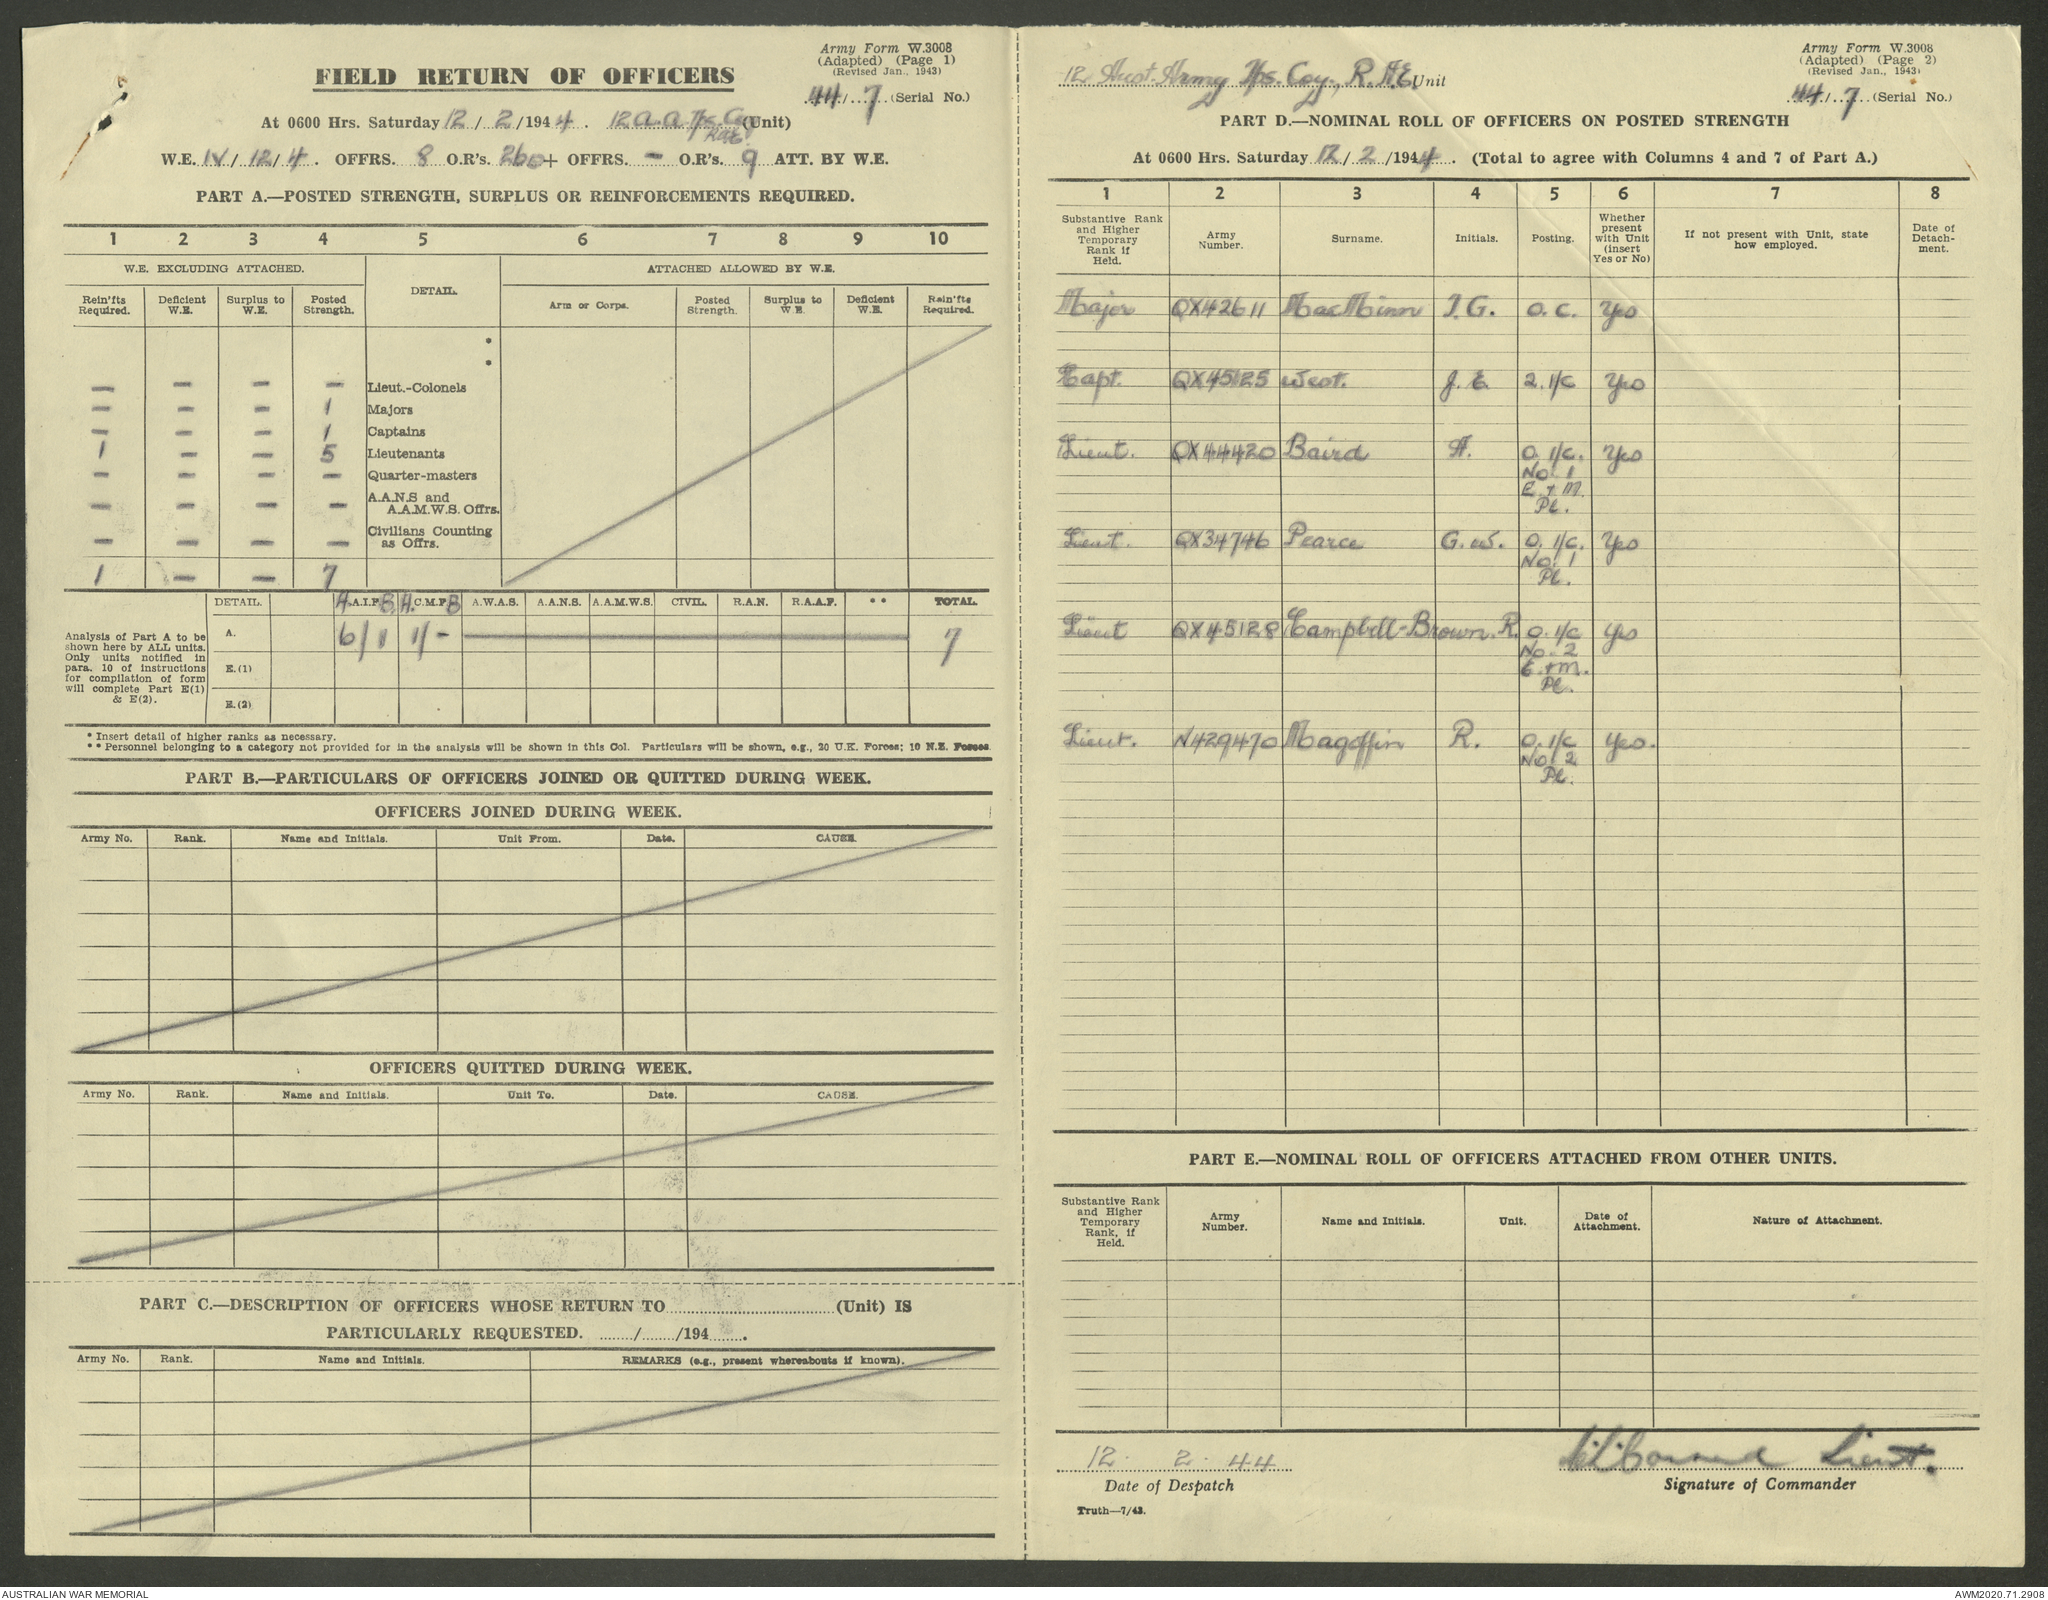 Army Form W.3008
(Adapted) (Page 1)
(Revised Jan., 1943)
FIELD RETURN OF OFFICERS
44/ 7 (Serial No.)
At 0600 Hrs. Saturday 12/2/1944. 12 A.A. Tps. Coy (Unit)
R.A.E.
W.E. IV/12/4. OFFRS. 8 O.R's. 260 + OFFRS. - O.R's. 9 ATT. BY W.E.
PART A.—POSTED STRENGTH, SURPLUS OR REINFORCEMENTS REQUIRED.
1 2 3 4 5 6 7 8 9 10
W.E. EXCLUDING ATTACHED. DETAIL. ATTACHED ALLOWED BY W.E.
Rein'fts Required. Deficient W.E. Surplus to W.E. Posted Strength. Arm or Corps. Posted Strength. Surplus to W.E. Deficient W.E. Rein'fts Required.
*
*
— — — — Lieut.-Colonels
— — — 1 Majors
— — — 1 Captains
1 — — 5 Lieutenants
— — — — Quarter-masters
— — — — A.A.N.S and A.A.M.W.S. Offrs.
— — — — Civilians Counting as Offrs.
1 — — 7
DETAIL. A.A.I.F.B. A.C.M.F.B A.W.A.S. A.A.N.S. A.A.M.W.S. CIVIL. R.A.N. R.A.A.F. ** TOTAL.
Analysis of Part A to be
shown here by ALL units.
Only units notified in
para. 10 of instructions
for compilation of form
will complete Part E(1)
& E(2).
A. 6/1 1/- 7
E.(1)
E.(2)
* Insert detail of higher ranks as necessary.
** Personnel belonging to a category not provided for in the analysis will be shown in this Col. Particulars will be shown, e.g., 20 U.K. Forces; 10 N.Z. Forces.
PART B.—PARTICULARS OF OFFICERS JOINED OR QUITTED DURING WEEK.
OFFICERS JOINED DURING WEEK.
Army No. Rank. Name and Initials. Unit From. Date. CAUSE.
OFFICERS QUITTED DURING WEEK.
Army No. Rank. Name and Initials. Unit To. Date. CAUSE.
PART C.—DESCRIPTION OF OFFICERS WHOSE RETURN TO..............................(Unit) IS
PARTICULARLY REQUESTED. ......./......./194.......
Army No. Rank. Name and Initials. REMARKS (e.g., present whereabouts if known).
12 Aust. Army Tps. Coy., R.A.E. Unit
Army Form W.3008
(Adapted) (Page 2)
(Revised Jan., 1943)
44/ 7 (Serial No.)
PART D.—NOMINAL ROLL OF OFFICERS ON POSTED STRENGTH
At 0600 Hrs. Saturday 12/2/1944. (Total to agree with Columns 4 and 7 of Part A.)
1 2 3 4 5 6 7 8
Substantive Rank and Higher Temporary Rank if Held. Army Number. Surname. Initials. Posting. Whether present with Unit (insert Yes or No) If not present with Unit, state how employed. Date of Detachment.
Major QX42611 MacMinn T.G. O.C. Yes
Capt. QX45125 West. J.E. 2.I/C Yes
Lieut. QX44420 Baird A. O.I/C. Yes
No. 1
E + M.
Pl.
Lieut. QX34746 Pearce G.W. O.I/C. Yes
No. 1
Pl.
Lieut QX45128 Campbell-Brown. R. O.I/C Yes
No. 2
E. + M.
Pl.
Lieut. N429470 Magoffin R. O.I/C Yes.
No. 2
Pl.
PART E.—NOMINAL ROLL OF OFFICERS ATTACHED FROM OTHER UNITS.
Substantive Rank and Higher Temporary Rank, if Held. Army Number. Name and Initials. Unit. Date of Attachment. Nature of Attachment.
12. 2. 44 Lieut.
Date of Despatch Signature of Commander
Truth—7/43.
AUSTRALIAN WAR MEMORIAL AWM2020.71.2908